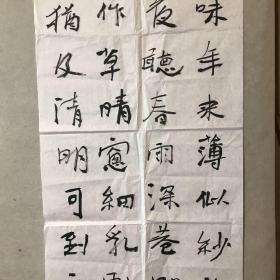 味年来薄似紗
夜聽春雨深巷
作草晴窗細乳
猶及清明可到